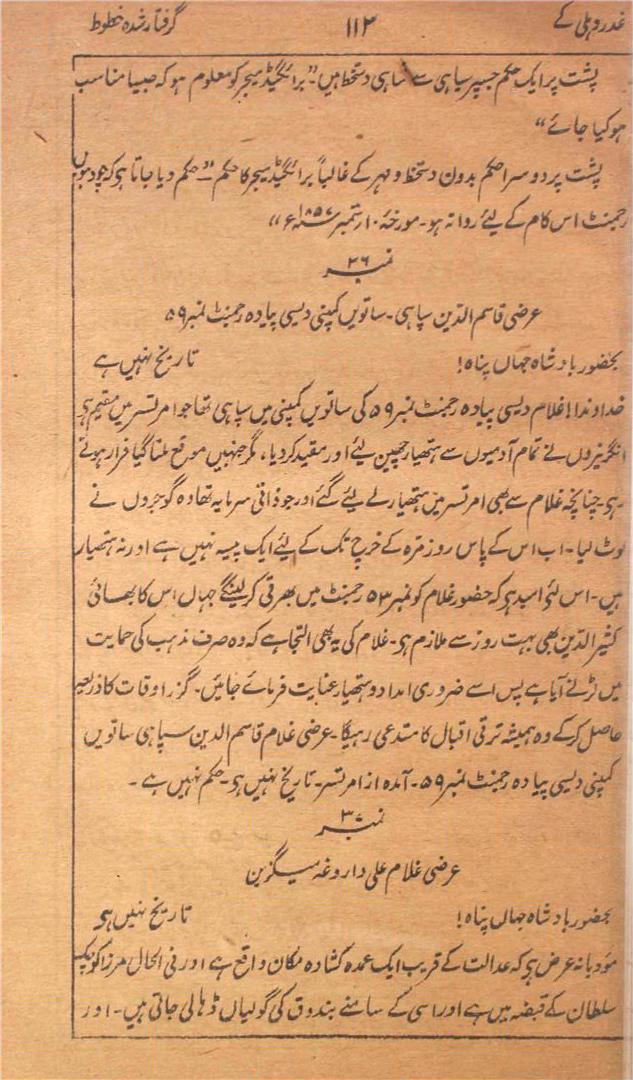 غدر دہلی کے ۱۱۳ گرفتار شدہ خطوط
پشت پر ایک حکم جسپر سیاہی سے شاہی دستخط ہیں۔ ”برائگیڈ میجر کو معلوم ہو کہ جیسا مناسب
ہو کیا جائے“
پشت پر دوسرا حکم بدون دستخط و مہر کے غالباً برائگیڈ میجر کا حکم۔ ”حکم دیا جاتا ہو کہ چودہویں
رجمنٹ اس کام کے لیئے روانہ ہو۔ مورخہ ۱۰ ستمبر ۱۸۵۷ء“
نمبر ۳۶
عرضی قاسم الدین سپاہی۔ ساتویں کمپنی دیسی پیادہ رجمنٹ نمبر ۵۹
بحضور بادشاہ جہاں پناہ! تاریخ نہیں ہے
خداوندا! غلام دیسی پیادہ رجمنٹ نمبر ۵۹ کی ساتویں کمپنی میں سپاہی تھا جو امرتسر میں مقیم ہو
انگریزوں نے تمام آدمیوں سے ہتھیار چھین لیئے اور مقید کردیا، مگر جنہیں موقع ملتا گیا فرار ہوتے
رہے۔ چنانچہ غلام سے بھی امرتسر میں ہتھیار لے لیئے گئے اور جو ذاتی سرمایہ تھا وہ گوجروں نے
لوٹ لیا۔ اب اس کے پاس روزمرہ کے خرچ تک کے لیئے ایک پیسہ نہیں ہے اور نہ ہتھیار
ہیں۔ اس لئی امید ہو کہ حضور غلام کو نمبر ۵۳ رجمنٹ میں بھرتی کر لینگے جہاں اس کا بھائی
کثیر الدین بھی بہت روز سے ملازم ہی۔ غلام کی یہ بھی التجا ہے کہ وہ صرف مذہب کی حمایت
میں لڑنے آیا ہے پس اسے ضروری امداد و ہتھیار عنایت فرمائے جائیں۔ گزر اوقات کا ذریعہ
حاصل کر کے وہ ہمیشہ ترقی اقبال کا مستدعی رہیگا۔ عرضی غلام قاسم الدین سپاہی ساتویں
کمپنی دیسی پیادہ رجمنٹ نمبر ۵۹۔ آمدہ از امرتسر۔ تاریخ نہیں ہی۔ حکم نہیں ہے۔
نمبر ۳۷
عرضی غلام علی داروغہ میگزین
بحضور بادشاہ جہاں پناہ! تاریخ نہیں ہی
مؤدبانہ عرض ہی کہ عدالت کے قریب ایک عمدہ کشادہ مکان واقع ہے اور فی الحال مرزا کوچک
سلطان کے قبضہ میں ہے اور اسی کے سامنے بندوق کی گولیاں ڈھالی جاتی ہیں۔ اور